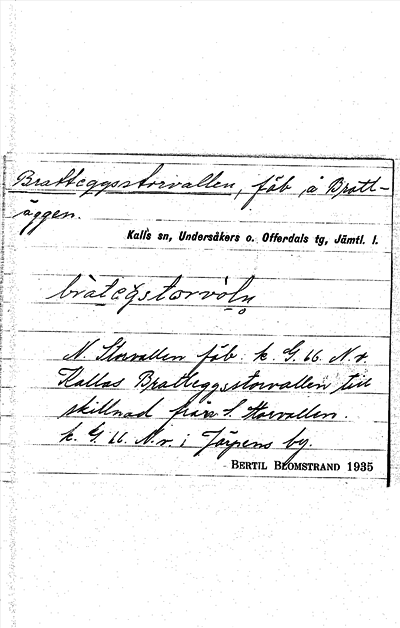 Bratteggsstorvallen, fäb å Bratt-
äggen.
Kalls sn, Undersåkers o. Offerdals tg, Jämtl. l.
N. Storvallen fäb. k. G. 66. N.v.
Kallas Bratteggsstorvallen till
skillnad från S. Storvallen.
k. G. 66. N.v. i Järpens by.
BERTIL BLOMSTRAND 1935